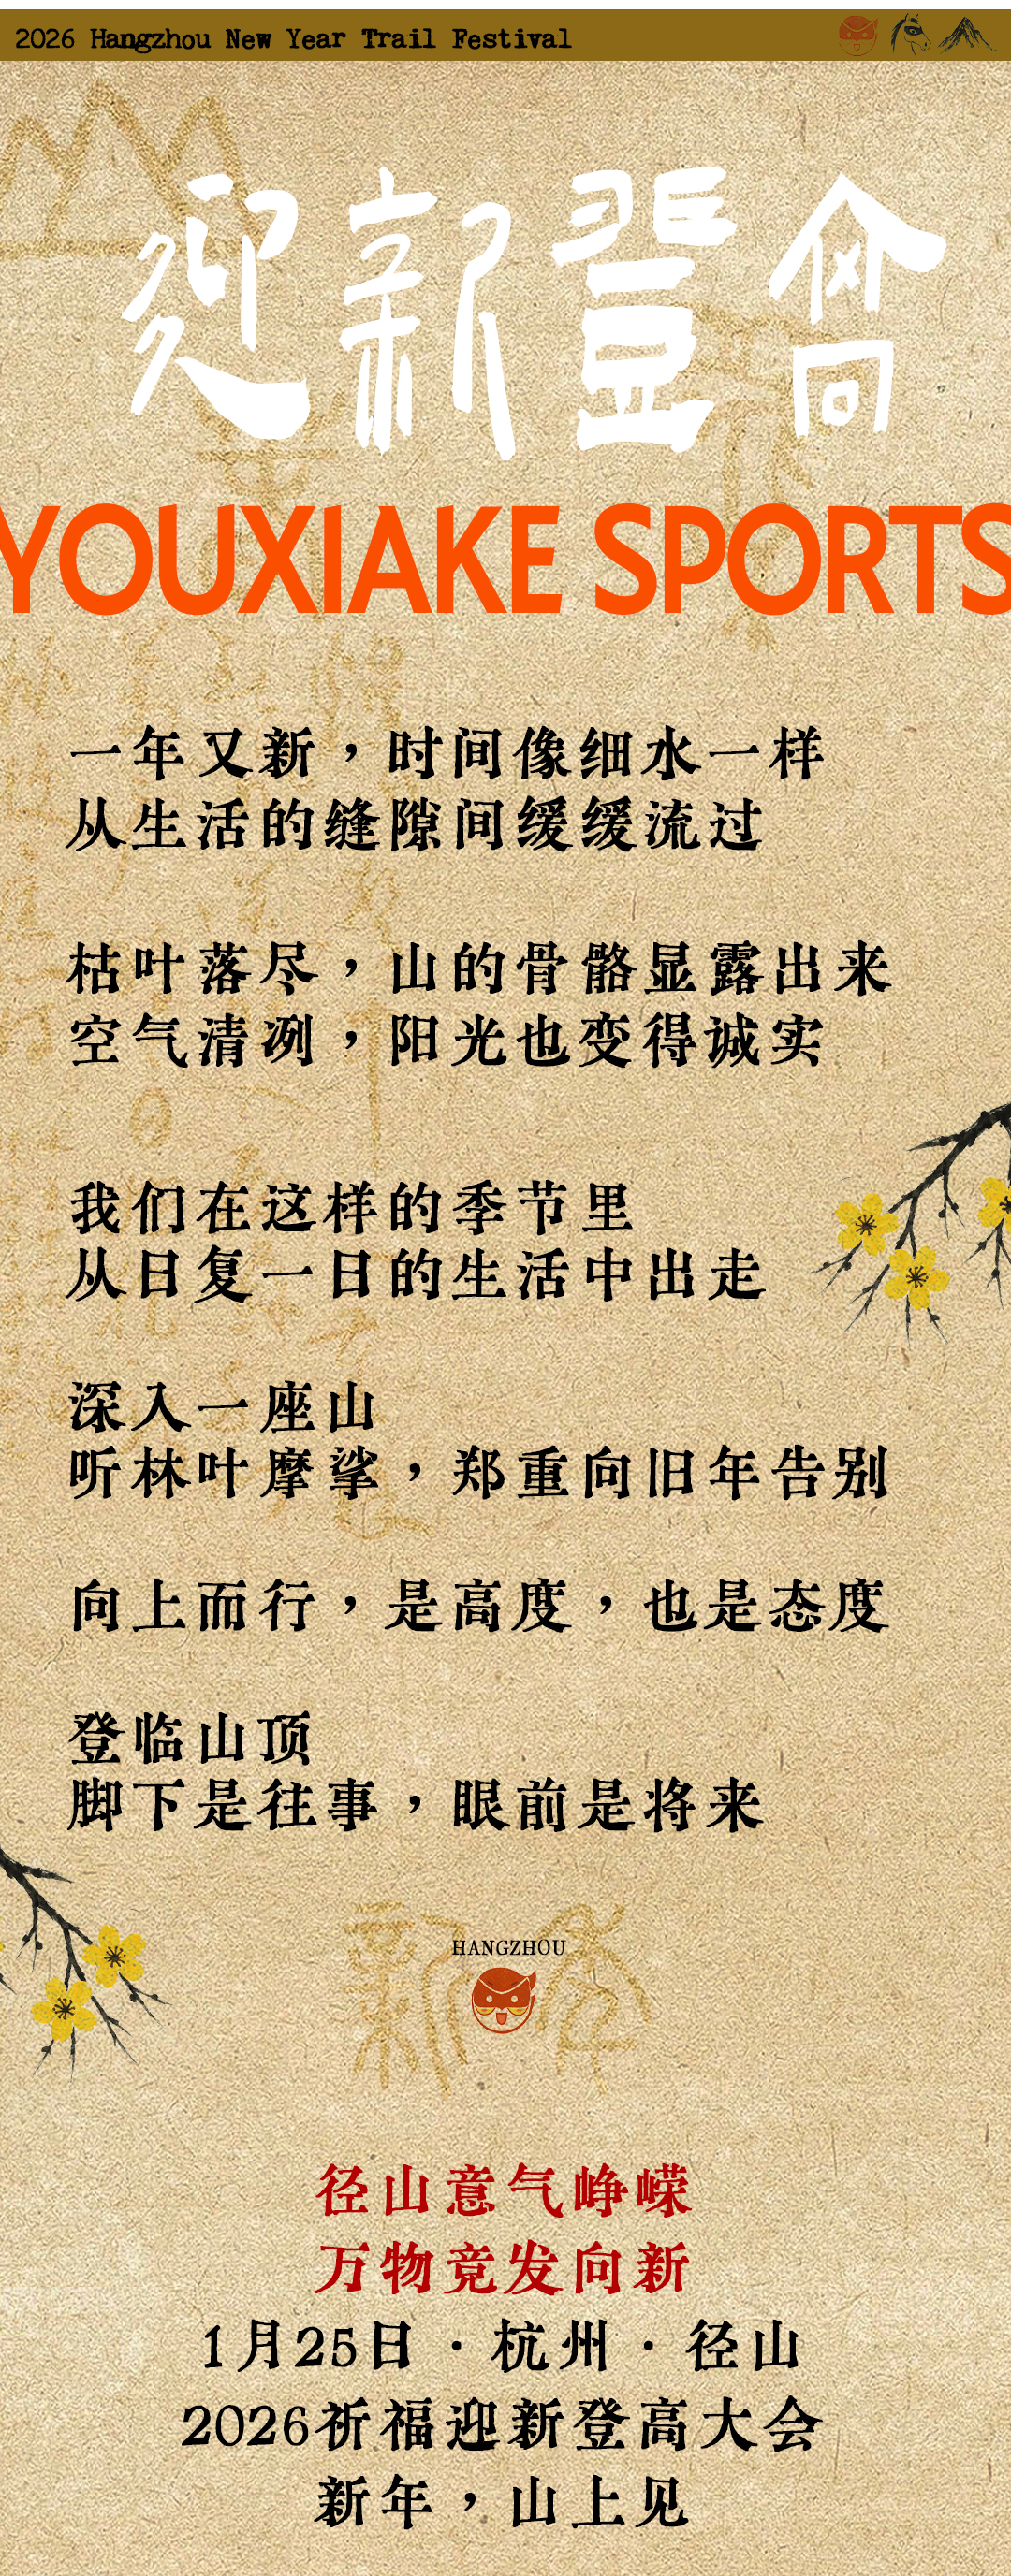 2026 Hangzhou New Year Trail Festival
迎新登高
YOUXIAKE SPORTS
一年又新，时间像细水一样
从生活的缝隙间缓缓流过
枯叶落尽，山的骨骼显露出来
空气清冽，阳光也变得诚实
我们在这样的季节里
从日复一日的生活中出走
深入一座山
听林叶摩挲，郑重向旧年告别
向上而行，是高度，也是态度
登临山顶
脚下是往事，眼前是将来
新年
HANGZHOU
径山意气峥嵘
万物竞发向新
1月25日·杭州·径山
2026祈福迎新登高大会
新年，山上见